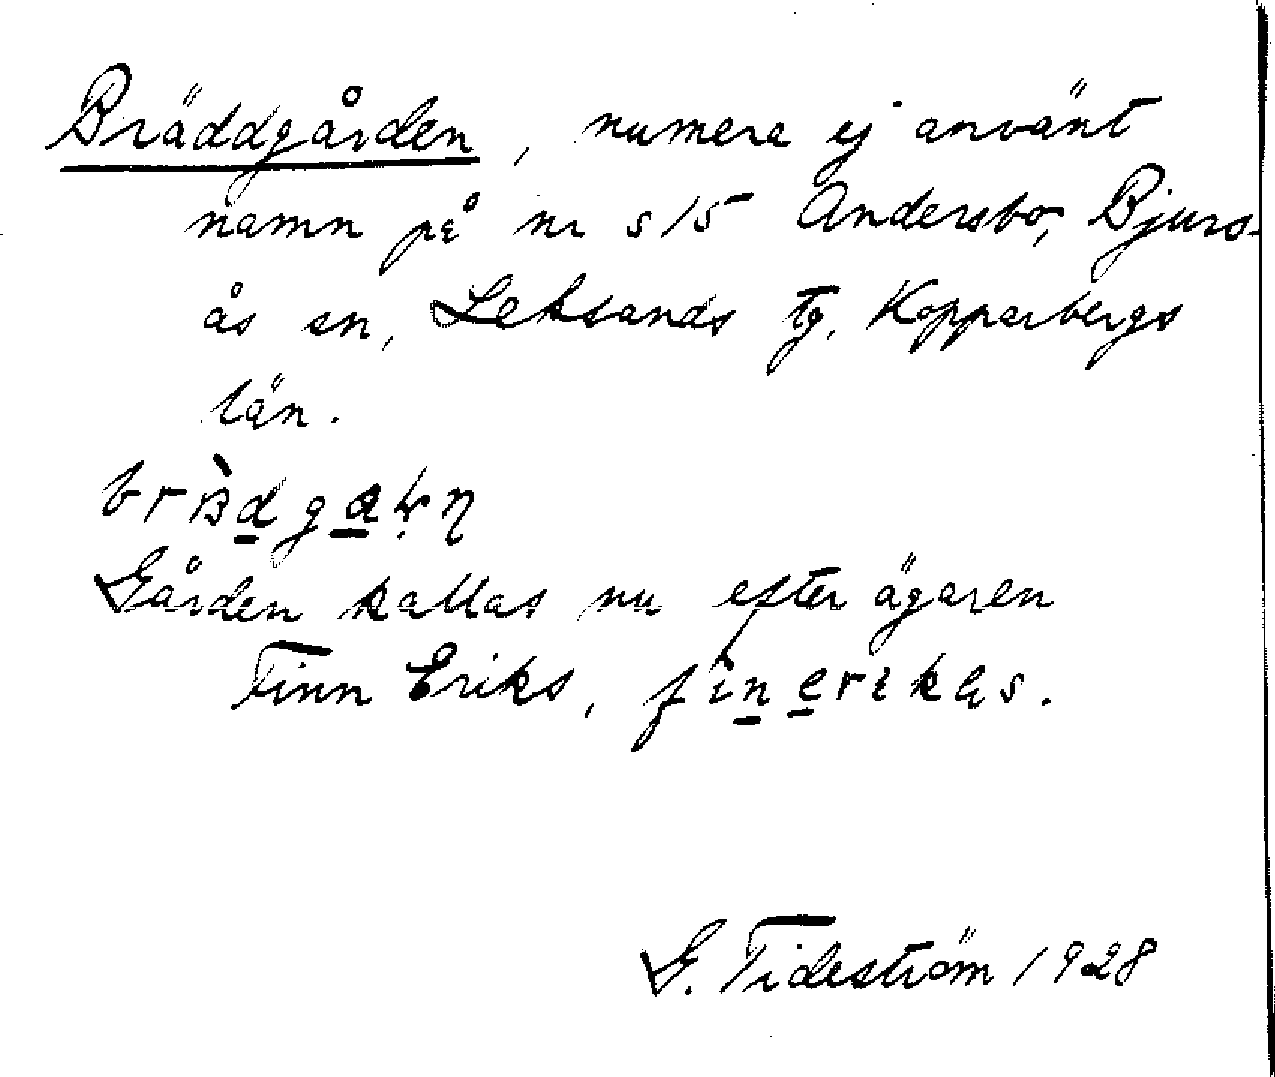 Bräddgården, numera ej använt
namn på nr s 15 Andersbo, Bjurs-
ås sn, Leksands tg, Kopparbergs
län.
Gården kallas nu efter ägaren
Finn Eriks, finerikas.
G. Tideström 1928